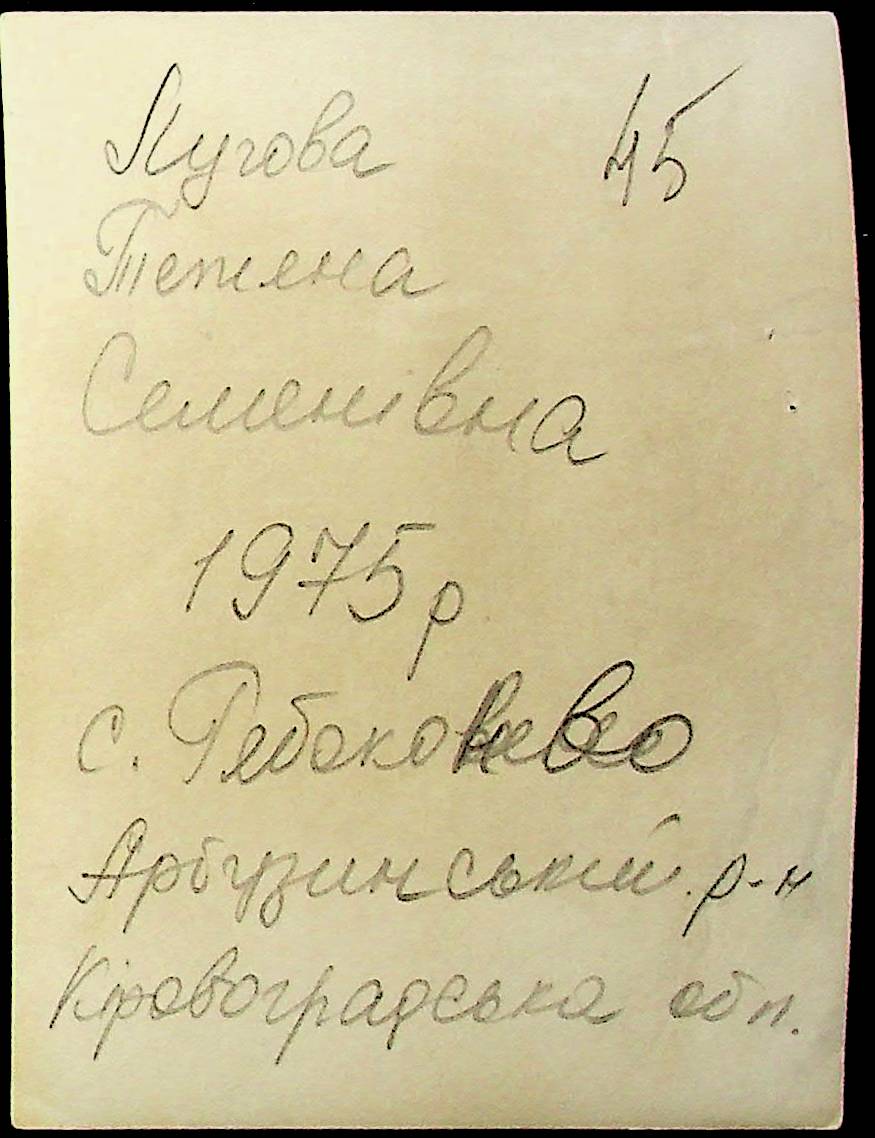 Лугова 45
Тетяна
Семенівна
1975 р
с.
Арбузинський р-н
Кіровоградська обл.